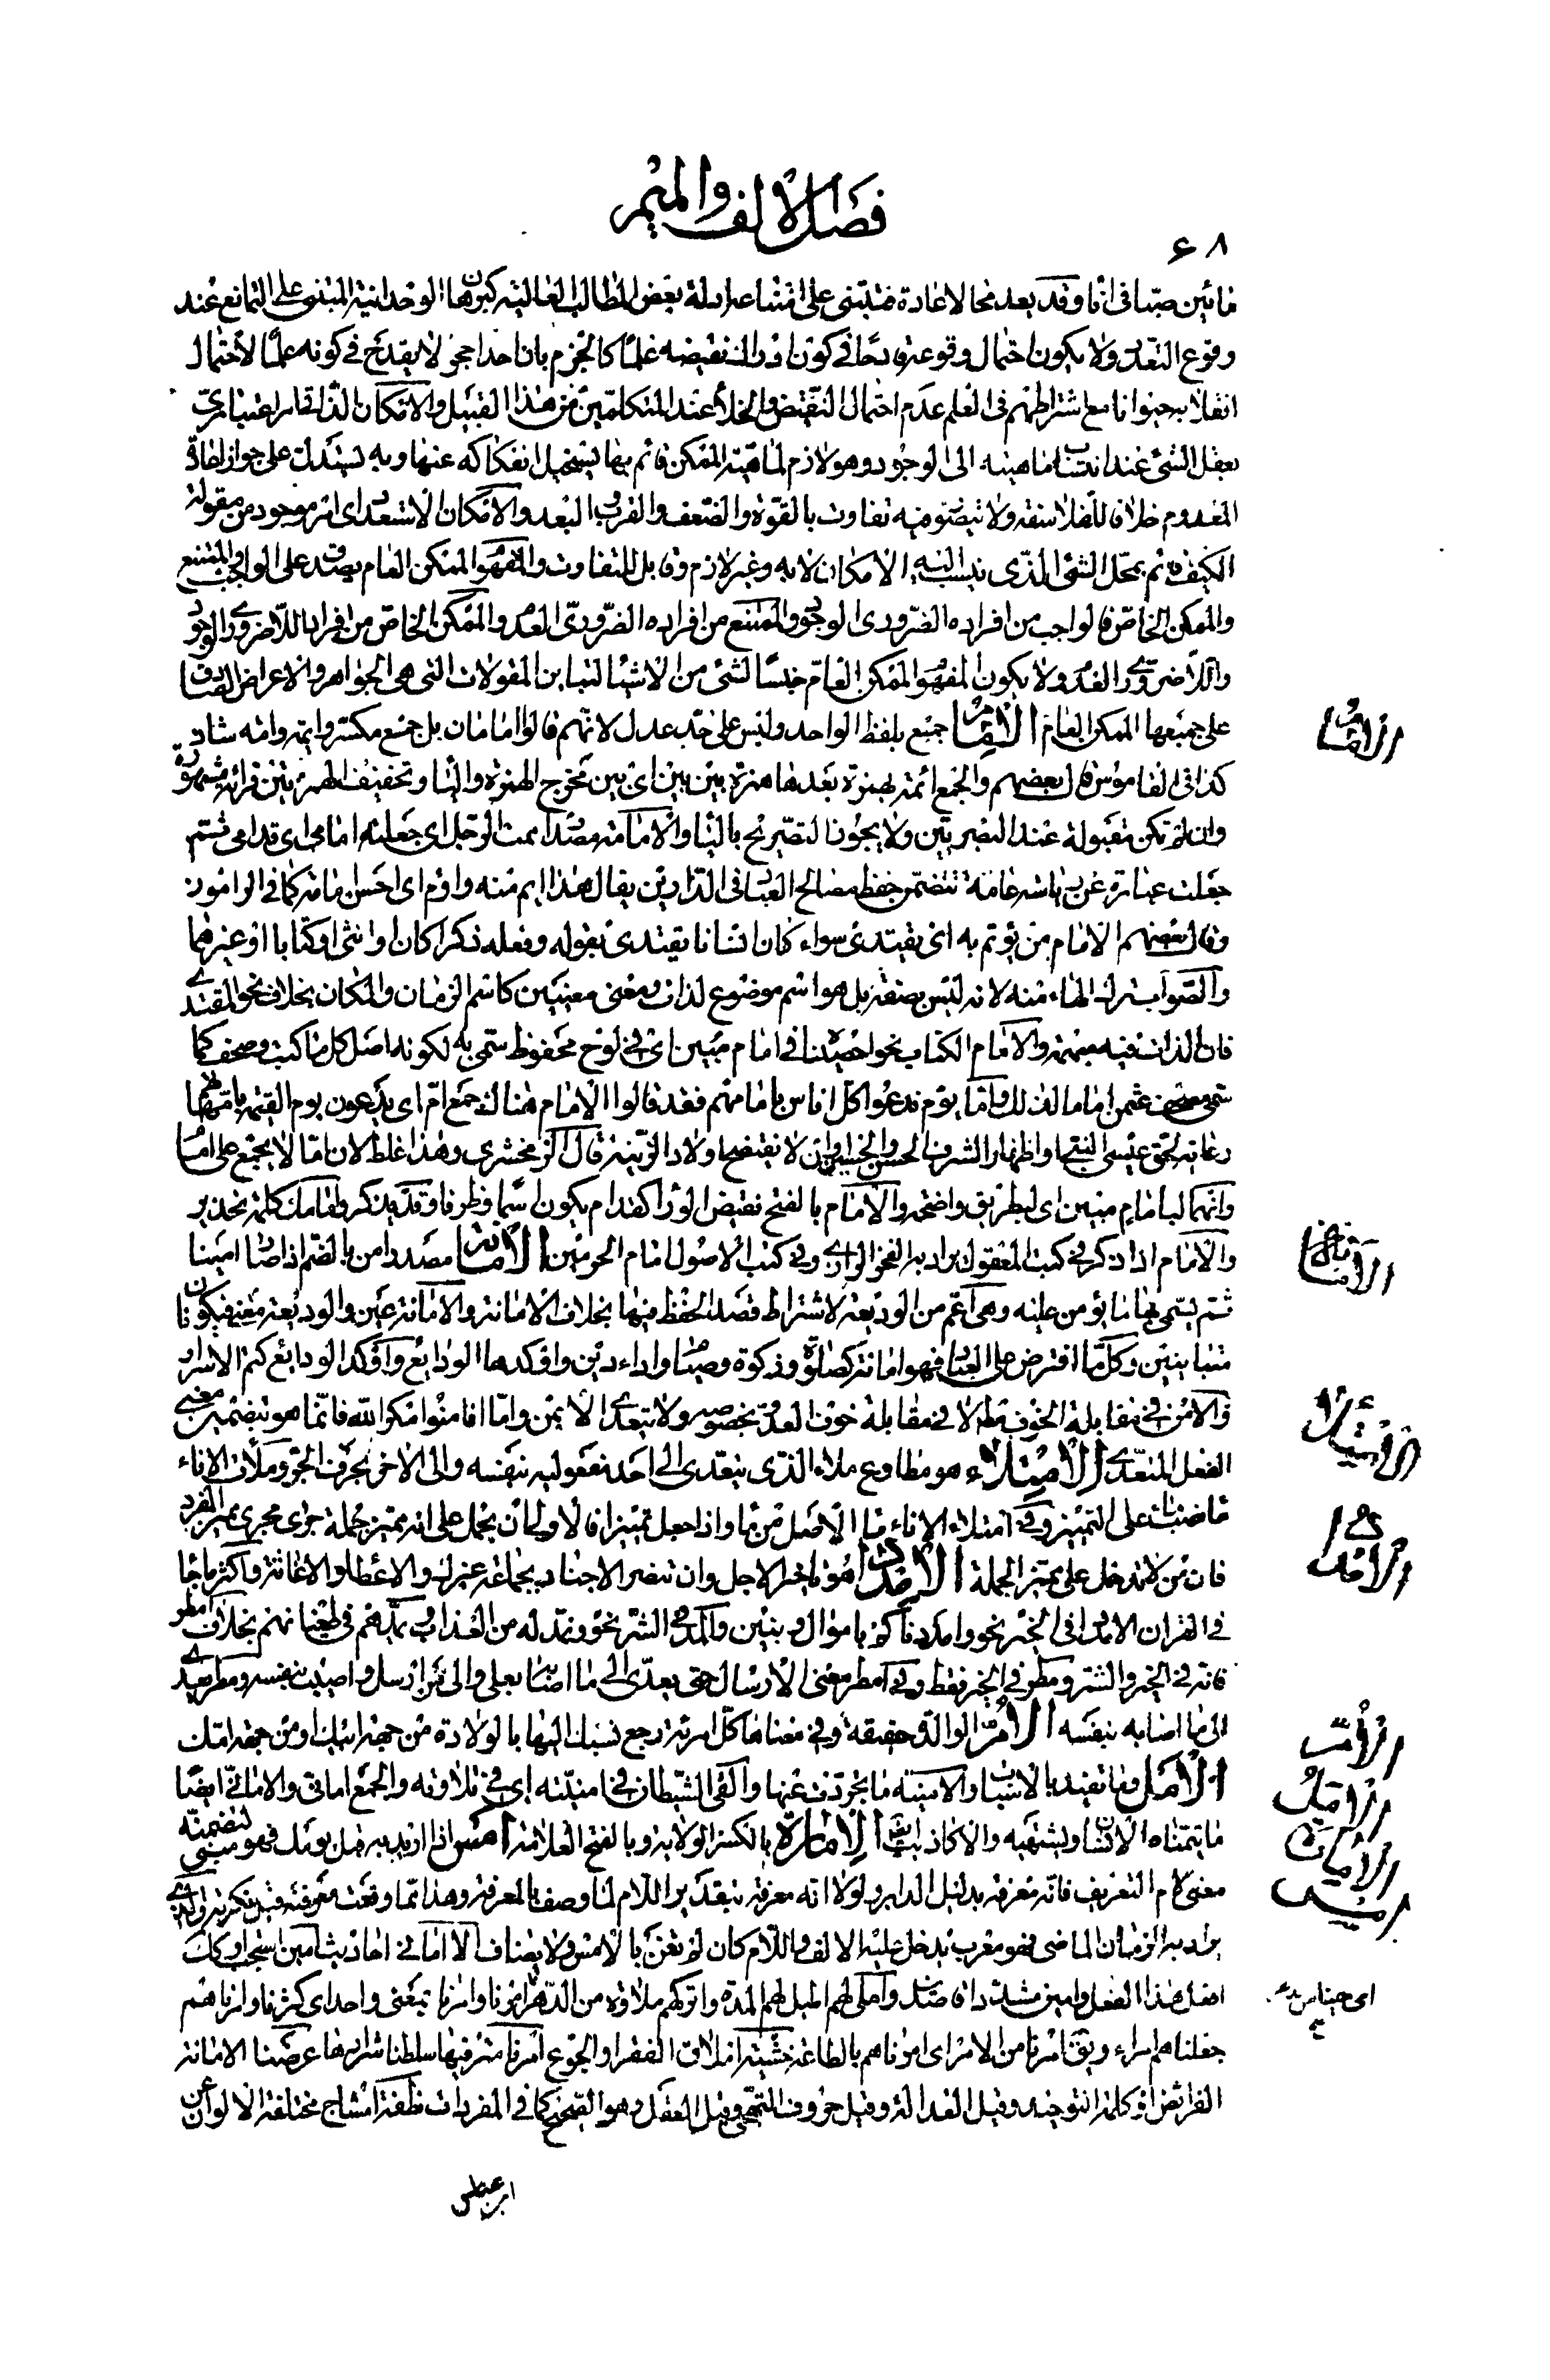 فصل الالف والميم
٦٨
ما ئين صباى انا وقد بعد محالا عادة فمبتنى على امتناعه ادلة بعض المطالب العالية كبرهان الوحدانية المبتنى على التمانع عند
وقوع التعدد ولا يكون احتمال وقوعه قادحا فى كون ادراك نقيضه علما كالجزم بان احدا حجر لا يقدح فى كونه علما لاحتمال
انقلابه حيوانا مع اشتراطهم فى العلم عدم احتمال النقيض والخلاء عند المتكلمين من هذا القبيل والامكان الذاتى امر اعتبارى
يعقل الشئ عند انتساب ماهيته الى الوجود وهو لازم لماهية الممكن قائم بها يستحيل انفكاكه عنها وبه يستدل على جواز اعادة
المعدوم خلافا للفلاسفة ولا يتصور فيه تفاوت بالقوة والضعف والقرب والبعد والامكان الاستعدادى امر موجود من مقولة
الكيف قائم بمحل الشئ الذى ينسب اليه الامكان لا به وغير لازم وقابل للتفاوت والمفهوم الممكن العام يصدق على الواجب والممتنع
والممكن الخاص فالواجب من افراده الضرورى الوجود والممتنع من افراده الضرورى العدم والممكن الخاص من افراده اللاضرورى الوجود
واللاضرورى العدم ولا يكون المفهوم الممكن العام جنسا لشئ من الاشياء لتباين المقولات التى هى الجواهر والاعراض الصادق
على جميعها الممكن العام الامام جمع بلفظ الواحد وليس على حد عدل لانهم قالوا امامان بل جمع مكسر وايمة وامه شاذ
كذا فى القاموس قال بعضهم والجمع ائمة بهمزة بعدها همزة بين بين اى بين مخرج الهمزة والياء وتخفيف الهمزتين قراءة مشهورة
وان لم تكن مقبولة عند البصريين ولا يجوز التصريح بالياء والامامة مصدر اممت الرجل اى جعلته امامى اى قدامى ثم
جعلت عبارة عن رياسة عامة تتضمن حفظ مصالح العباد فى الدارين يقال هذا ايم منه واوم اى احسن امامة كما فى الراموز
وقال بعضهم الامام من يؤتم به اى يقتدى سواء كان انسانا يقتدى بقوله وفعله ذكرا كان او انثى او كتابا او غيرهما
والصواب ترك الهاء منه لانه ليس بصفة بل هو اسم موضوع لذات ومعنى معينين كاسم الزمان والمكان بخلاف نحو المقتدى
فان الذات فيه مبهمة والامام الكتاب نحو احصيناه فى امام مبين اى فى لوح محفوظ سمى به لكونه اصل كل ما كتب وصحف كما
سمى مصحف عثمن اماما لذلك واما يوم ندعوا كل اناس بامامهم فقد قالوا الامام هنالك جمع ام اى يدعون يوم القيمة بامهاتهم
رعاية لحق عيسى النبى واظهارا لشرف الحسن والحسين وان لا يفتضح اولاد الزنية قال الزمخشرى وهذا غلط لان اما لا يجمع على امام
وانهما لبامام مبين اى لبطريق واضحة والامام بالفتح نقيض الوراء كقدام يكون اسما وظرفا وقد يذكر وامامك كلمة تحذير
والامام اذا ذكر فى كتب المعقول يراد به الفخر الرازى وفى كتب الاصول امام الحرمين الامانة مصدر امن بالضم اذا صار امينا
ثم يسمى بها ما يؤمن عليه وهى اعم من الوديعة لاشتراط قصد الحفظ فيها بخلاف الامانة والامانة عين والوديعة معنى فيكونان
متباينين وكل ما افترض على العباد فهو امانة كصلوة وزكوة وصيام واداء دين واوكدها الودائع واوكد الودائع كتم الاسرار
والامن فى مقابلة الخوف مطلقا لا فى مقابلة خوف العدو بخصوصه ولا يتعدى الا بمن واما افامنوا مكر الله فانما هو بتضمين معنى
الفعل المتعدى الامتلاء هو مطاوع ملاء الذى يتعدى الى احد مفعوليه بنفسه والى الاخر بحرف الجر وملأت الاناء
ماء نصبا على التمييز وفى امتلاء الاناء ماء الاصل من ماء واذا جعل تمييزا فالاولى ان يحمل على انه مميز جملة جرى مجرى مميز المفرد
فان من لا تدخل على مميز الجملة الامداد هو تاخير الاجل وان تنصر الاجناد بجماعة غيرك والاعطاء والاغاثة واكثر ما جاء
فى القران الامداد فى الخير نحو وامددناكم باموال وبنين والمد فى الشر نحو ونمد له من العذاب يمدهم فى طغيانهم بخلاف مطر
فانه فى الخير والشر ومطر فى الخير فقط وفى امطر معنى الارسال حتى يعدى الى ما اصابه بعلى والى من ارسل واصيب بنفسه ومطر يعدى
الى ما اصابه بنفسه الام الوالدة حقيقة وفى معناها كل امرئة رجع نسبك اليها بالولادة من جهة ابيك او من جهة امك
الامل وما تقيد بالاسباب والامنية ما تجردت عنها والقى الشيطان فى امنيته اى فى تلاوته والجمع امانى والامانى ايضا
ما يتمناه الانسان ويشتهيه والاكاذيب ايضا الامارة بالكسر الولاية وبالفتح العلامة امس اذا اريد به قبل يومك فهو مبنى لتضمنه
معنى لام التعريف فانه معرفة بدليل الدابر ولولا انه معرفة بتقدير اللام لما وصف بالمعرفة وهذا مما وقعت معرفته قبل نكرته
يراد به الزمان الماضى فهو معرب يدخل عليه الالف واللام كان لم تغن بالامس ولا يضاف الا اما فى احاديث امين استجب او كذلك
افعل هذا الفعل وامين مشددا قاصدين واملى لهم امهل لهم المدة واتركهم ملاوة من الدهر امرنا وامرنا بمعنى واحد اى كثرنا وامرناهم
جعلناهم امراء ويق امرنا من الامر اى امرناهم بالطاعة خشية املاق الفقر او الجوع امرنا مترفيها سلطنا شرارها عرضنا الامانة
الفرائض او كلمة التوحيد وقيل العدالة وقيل حروف التهجى وقيل العقل وهو الصحيح كما فى المفردات نطفة امشاج مختلفة الالوان عن
ابن عباس
الامام
الامانة
الامتلاء
الامداد
الام
الامل
الامارة
امس